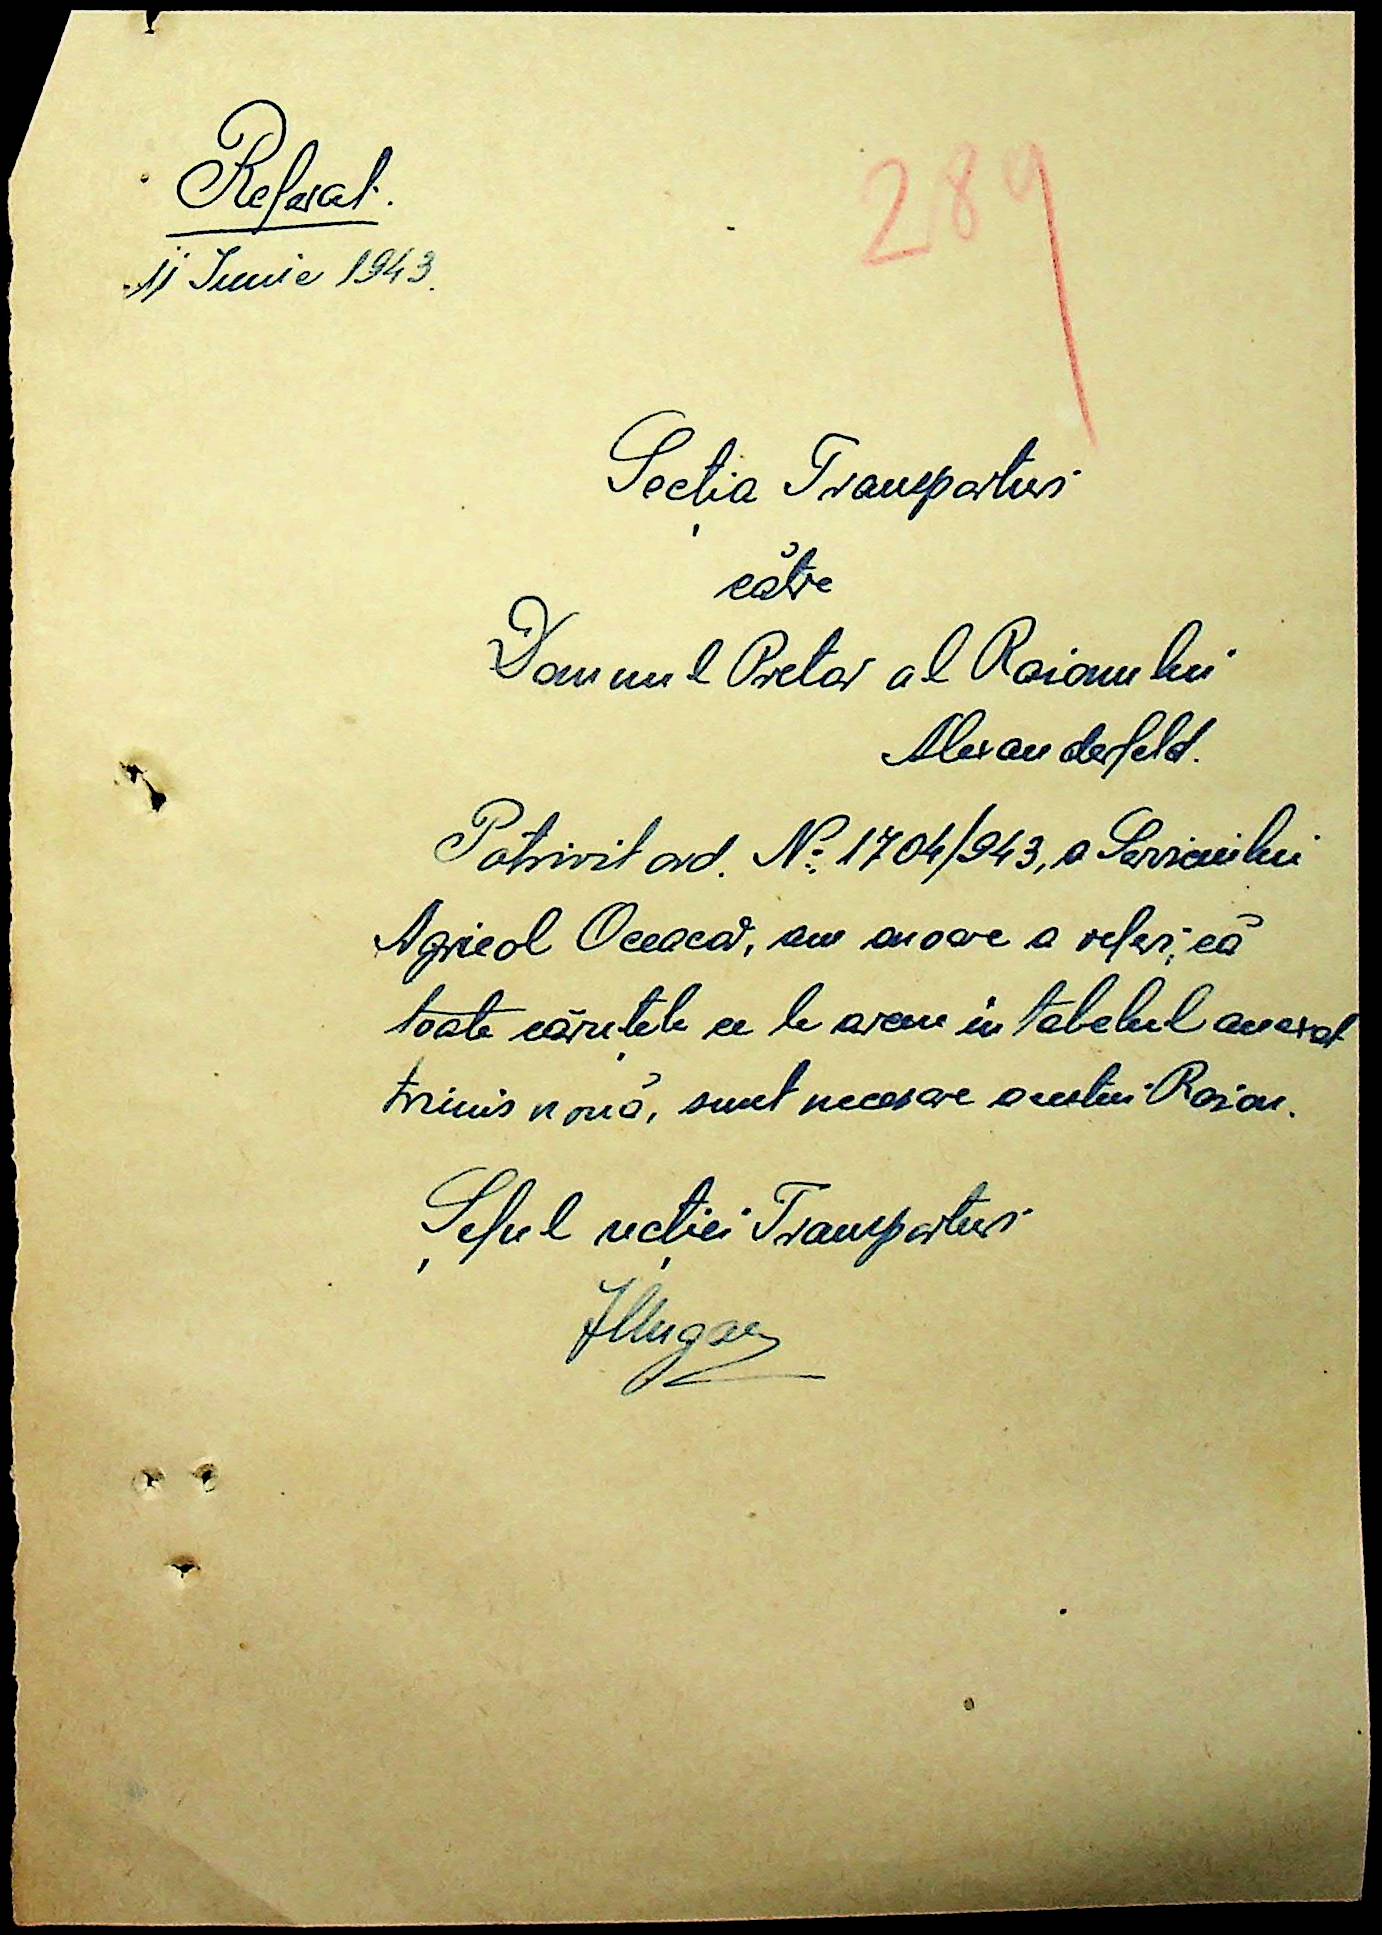 Referat.
11 Iunie 1943.
289
Secția Transporturi
către
Domnul Pretor al Raionului
Alexanderfeld.
Potrivit ord. No. 1704/943, a Serviciului
Agricol Oceacov, am onoare a referi, că
toate căruțele ce le avem în tabelul anexat
trimis nouă, sunt necesare acestui Raion.
Șeful secției Transporturi